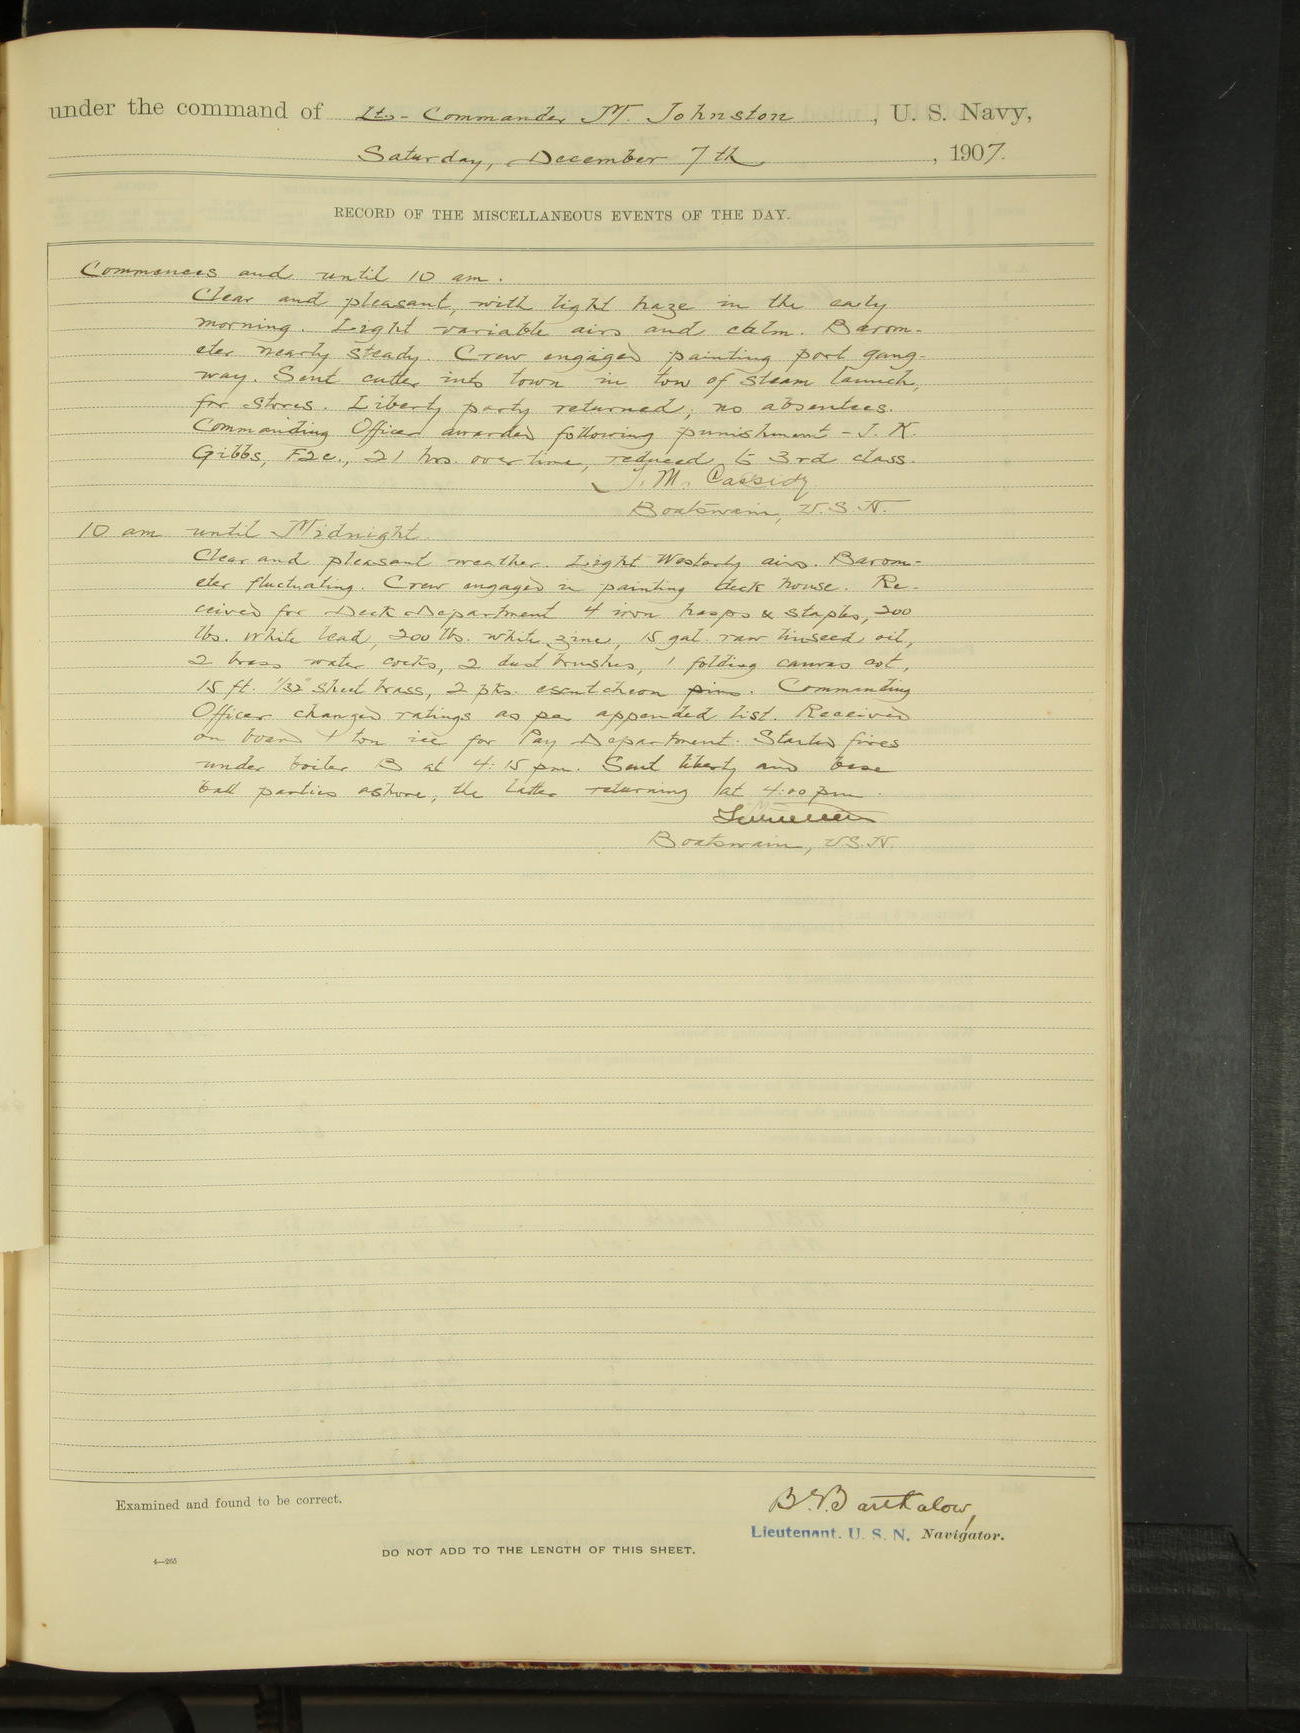 under the command of Lt. - Commander M. Johnston, U. S. Navy,
Saturday, December 7th, 1907.
RECORD OF THE MISCELLANEOUS EVENTS OF THE DAY.
Commences and until 10 am.
Clear and pleasant, with light haze in the early
morning. Light variable airs and calm. Barom-
eter nearly steady. Crew engaged painting port gang-
way. Sent cutter into town in tow of steam launch,
for stores. Liberty party returned; no absentees.
Commanding Officer awarded following punishment - J. K.
Gibbs, F2c., 21 hrs. overtime, reduced to 3rd class.
J. M. Cassidy
Boatswain, U.S.N.
10 am until Midnight.
Clear and pleasant weather. Light Westerly airs. Barom-
eter fluctuating. Crew engaged in painting deck house. Re-
ceived for Deck Department 4 iron hasps & staples, 200
lbs. white lead, 200 lbs. white zinc, 15 gal. raw linseed oil,
2 brass water cocks, 2 dust brushes, 1 folding canvas cot,
15 ft. 1/32" sheet brass, 2 pks. escutcheon pins. Commanding
Officer changed ratings as per appended list. Received
on board 1 ton ice for Pay Department. Started fires
under boiler B at 4:15 pm. Sent liberty and base
ball parties ashore, the latter returning at 4:00 pm.
Boatswain, U.S.N.
Examined and found to be correct.
Barthalow,
Lieutenant. U. S. N. Navigator.
DO NOT ADD TO THE LENGTH OF THIS SHEET.
4—265